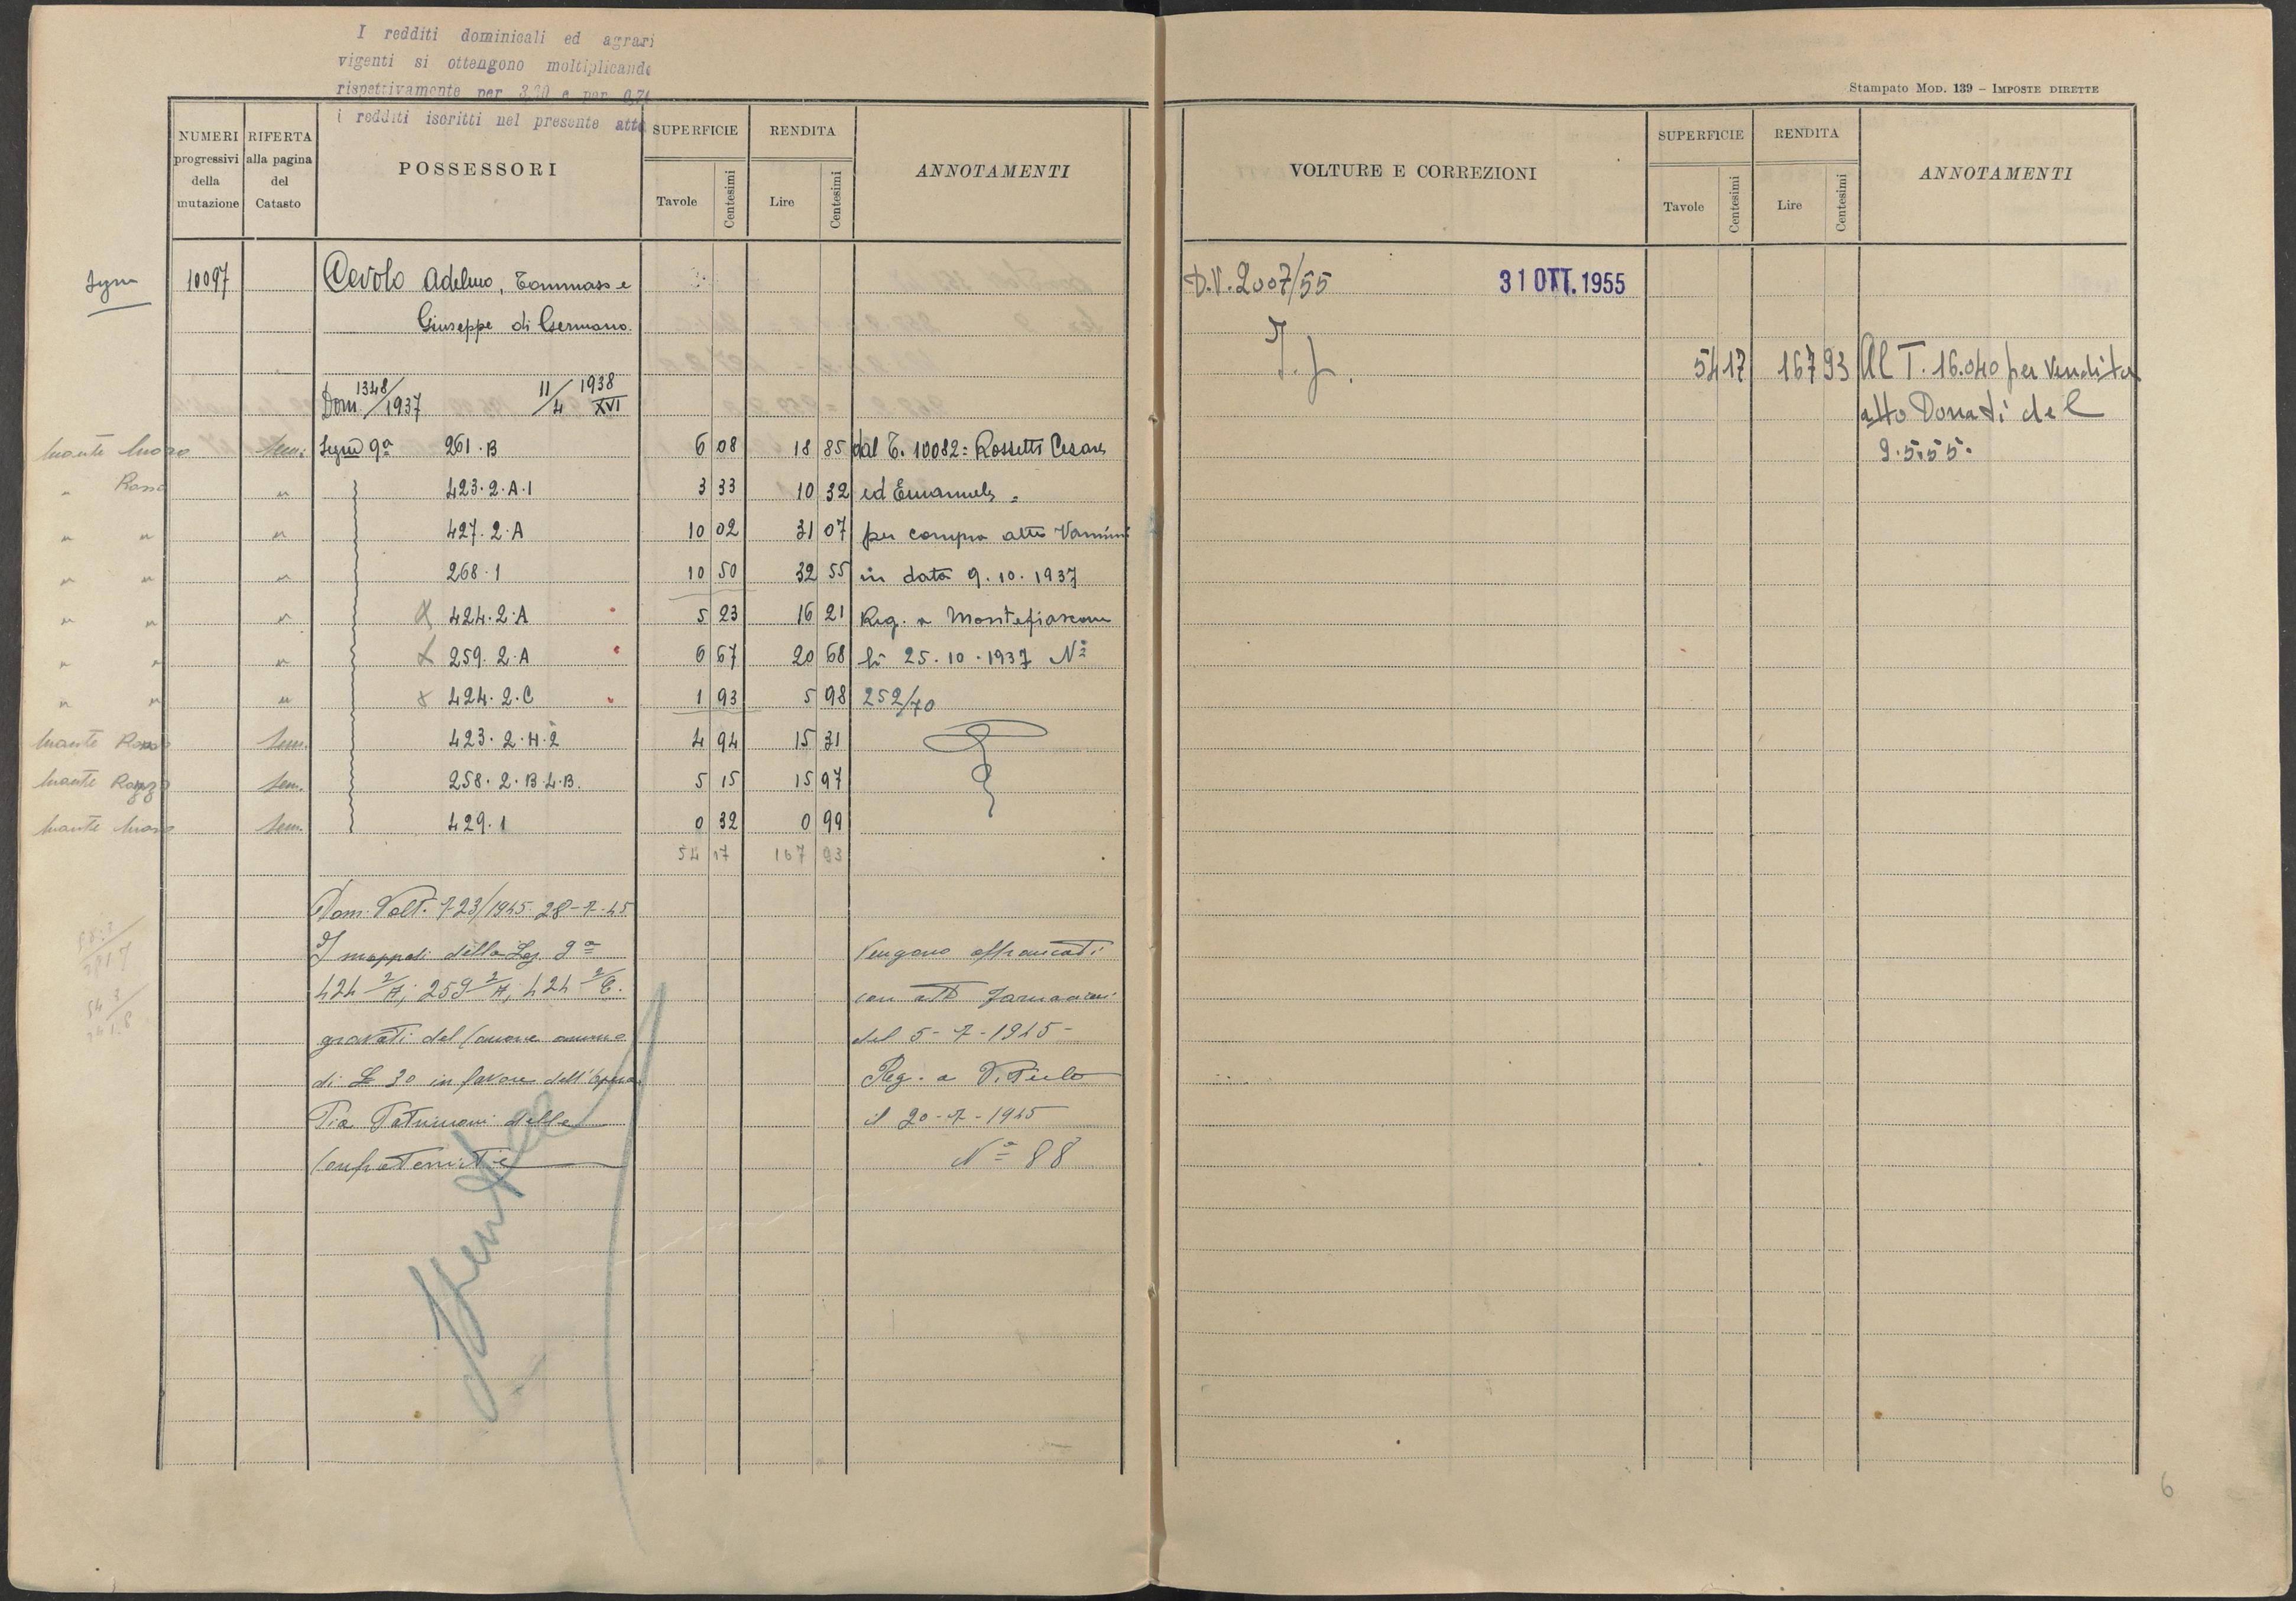 I redditi dominicali ed agrari
vigenti si ottengono moltiplicando
rispettivamente per 3,20 e per 0,70
i redditi iscritti nel presente atto
NUMERI progressivi della mutazione
RIFERTA alla pagina del Catasto
POSSESSORI
SUPERFICIE
Tavole Centesimi
RENDITA
Lire Centesimi
ANNOTAMENTI
10097 Cevolo Adelmo, Tommaso e
Giuseppe di Germano.
Dom 1348/1937 11/4 1938 XVI
Sem. 9ª 261.B 6 08 18 85 dal T. 10082= Rossetti Cesare
Rosso " 423.2.A.1 3 33 10 32 ed Emanuele =
" " " 427.2.A 10 02 31 07 per compra atto Vannini
" " " 268.1 10 50 32 55 in data 9.10.1937
" " " 424.2.A 5 23 16 21 Reg. a Montefiascone
" " " 259.2.A 6 67 20 68 li 25.10.1937 N°
" " " 424.2.C 1 93 5 98 252/70
Monte Rosso Sem. 423.2.H.2 4 94 15 31
Monte Sem. 258.2.B.L.B. 5 15 15 97
Monte Sem. 429.1 0 32 0 99
54 17 167 93
Dom. Volt. 723/1945 28-7-45
I mappali della Sez. 9ª Vengono affrancati
424 2/A; 259 2/A; 424 2/C. con atto
gravati del Canone annuo del 5-7-1945-
di £ 30 in favore dell'Opera Reg. a Viterbo
Pia Patrimoni delle il 20-7-1945
Confraternite N° 88
Stampato MOD. 139 – IMPOSTE DIRETTE
VOLTURE E CORREZIONI
SUPERFICIE
Tavole Centesimi
RENDITA
Lire Centesimi
ANNOTAMENTI
D.V. 2007/55 31 OTT. 1955
54 17 167 93 Al T. 16.040 per Vendita
atto Donati del
9.5.55.
6